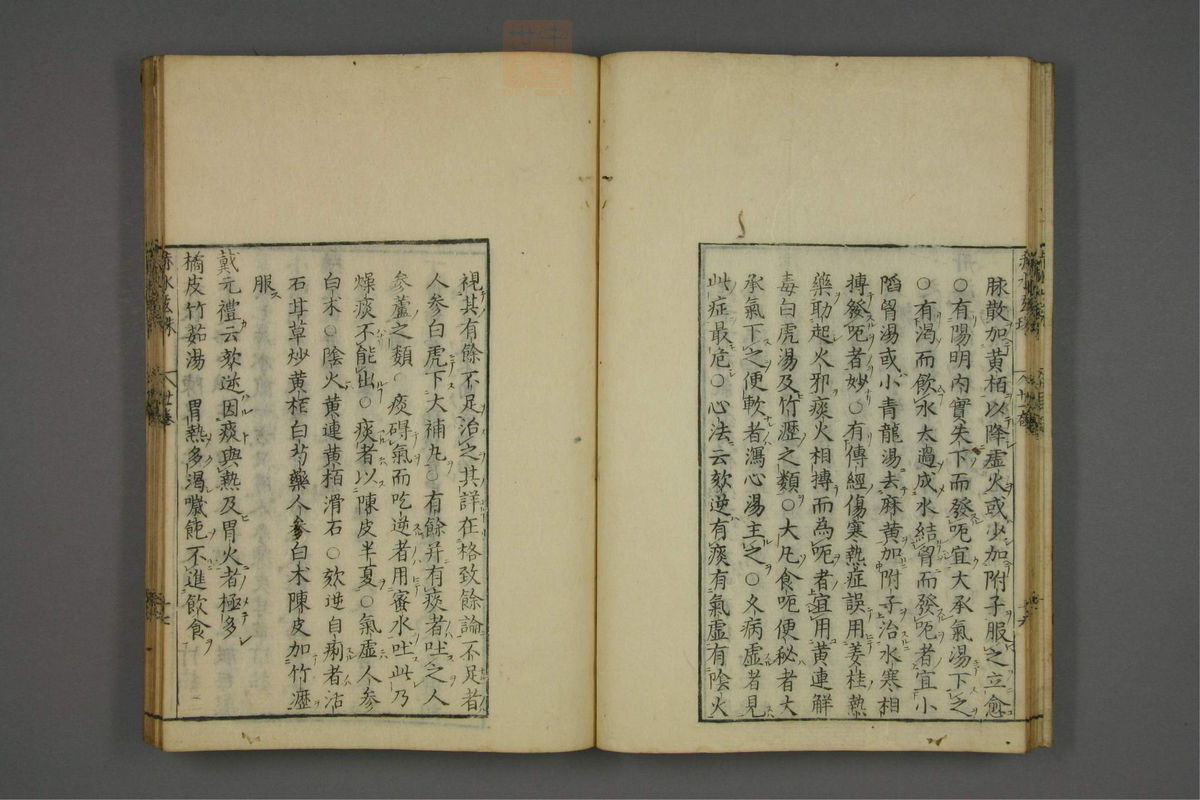 脉散加黄栢以降虚火或少加附子服之立愈
○有陽明内實失下而發呃宜大承氣湯下之
○有渴而飲水太過成水結胷而發呃者宜小
陷胷湯或小青龍湯去麻黄加附子治水寒相
搏發呃者妙○有傳經傷寒熱症誤用姜桂熱
藥助起火邪痰火相搏而為呃者宜用黄連解
毒白虎湯及竹瀝之類○大凡食呃便秘者大
承氣下之便軟者瀉心湯主之○久病虚者見
此症最危○心法云欬逆有痰有氣虚有陰火
視其有餘不足治之其詳在格致餘論不足者
人参白虎下大補丸○有餘并有痰者吐之人
参蘆之類○痰碍氣而呃逆者用蜜水吐此乃
燥痰不能出○痰者以陳皮半夏○氣虚人参
白术○陰火黄連黄栢滑石○欬逆自痢者活
石甘草炒黄栢白芍藥人参白术陳皮加竹瀝
服
戴元禮云欬逆因痰與熱及胃火者極多
橘皮竹茹湯 胃熱多渴嘔飩不進飲食